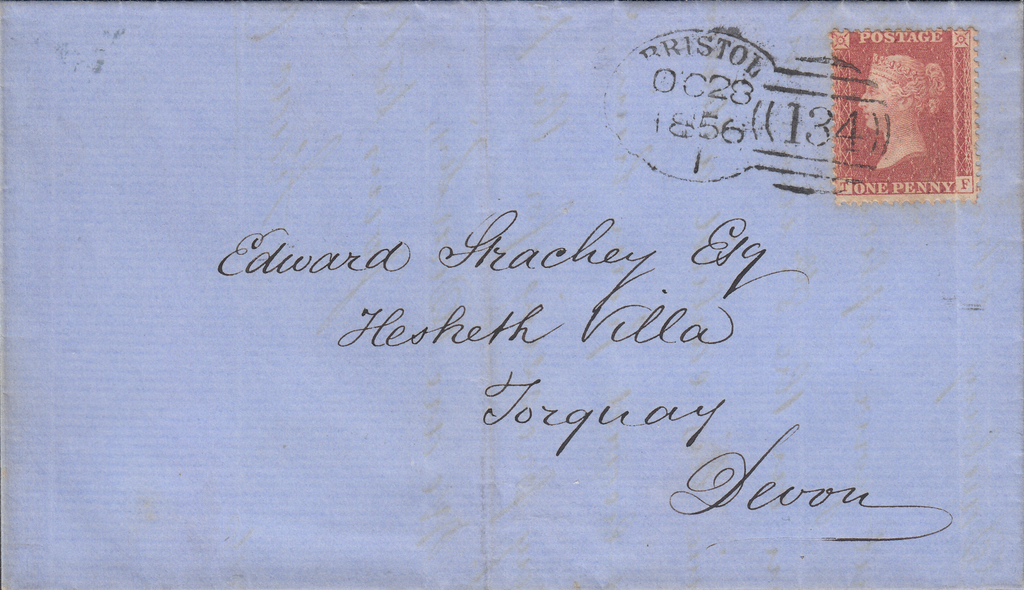 BRISTOL
OC28
1856
1
134
POSTAGE
T ONE PENNY F
Edward Strachey Esq
Hesketh Villa
Torquay
Devon